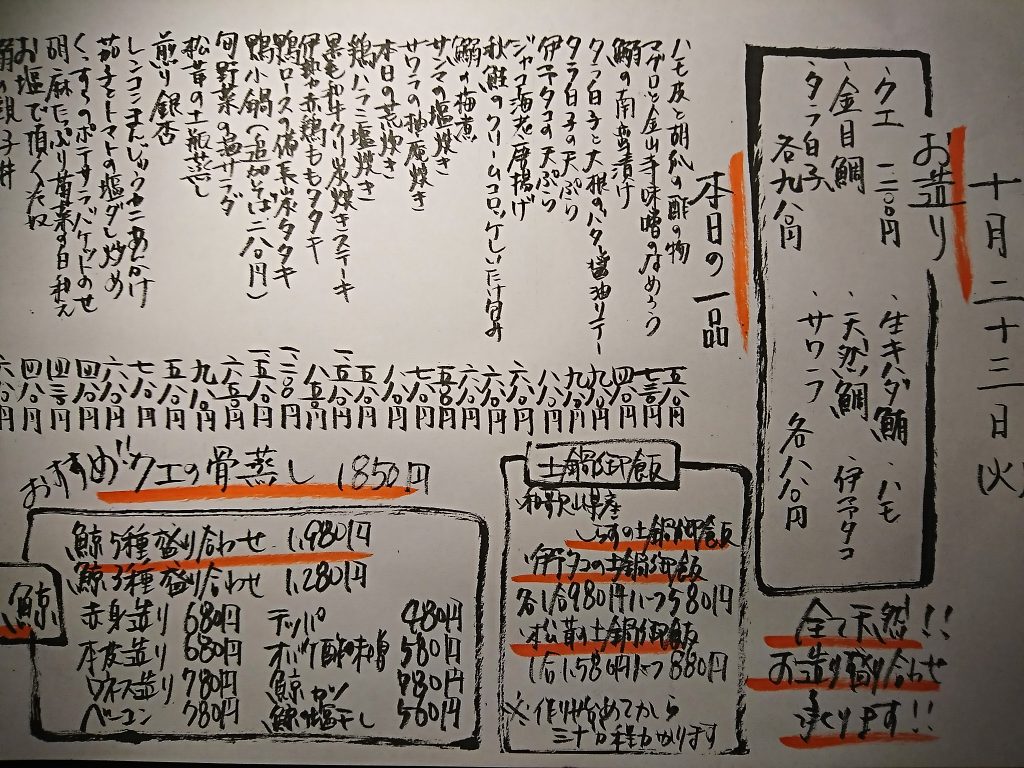 十月二十三日(火)
お造り
・クエ 一二〇〇円
・金目鯛
・タラ白子
各九八〇円
・生キハダ鮪
・ハモ
・天然鯛
・伊予タコ
・サワラ
各八八〇円
全て天然!!
お造り盛り合わせ
承ります!!
本日の一品
ハモ皮と胡瓜の酢の物 五八〇円
マグロと金山寺味噌のなめろう 七三〇円
鰯の南蛮漬け 四八〇円
タラ白子と大根のバター醤油ソテー 九八〇円
タラ白子の天ぷら 九八〇円
伊予タコの天ぷら 八八〇円
ジャコ海老唐揚げ 六八〇円
秋鮭のクリームコロッケしいたけ包み 六八〇円
鰯の梅煮 六八〇円
サンマの塩焼き 五八〇円
サワラの柚庵焼き 七八〇円
本日の荒炊き 八八〇円
鶏ハラミ塩焼き 五八〇円
黒毛和牛クリ炭焼きステーキ
伊勢赤鶏ももタタキ 八五〇円
鴨ロースの備長炭タタキ
鴨小鍋(追加そば二八〇円)
旬野菜の塩サラダ 六五〇円
松茸の土瓶蒸し 九八〇円
煎り銀杏 五八〇円
レンコンまんじゅうカニあんかけ 七八〇円
茄子とトマトの塩ダレ炒め 六八〇円
くんせいのポテサラバケットのせ 四八〇円
胡麻たっぷり青菜の白和え 四三〇円
お塩で頂く冷奴 四八〇円
六八〇円
土鍋御飯
和歌山県産
しらすの土鍋御飯
伊予タコの土鍋御飯
各1合980円ハーフ580円
松茸の土鍋御飯
1合1,580円ハーフ880円
※作りはじめてから
三十分程かかります
おすすめ クエの骨蒸し 1,850円
鯨
鯨5種盛り合わせ 1,980円
鯨3種盛り合わせ 1,280円
赤身造り 680円 テッパ 480円
本皮造り 680円 オバケ酢味噌 580円
ウネス造り 780円 鯨カツ 780円
ベーコン 780円 鯨の塩干し 580円